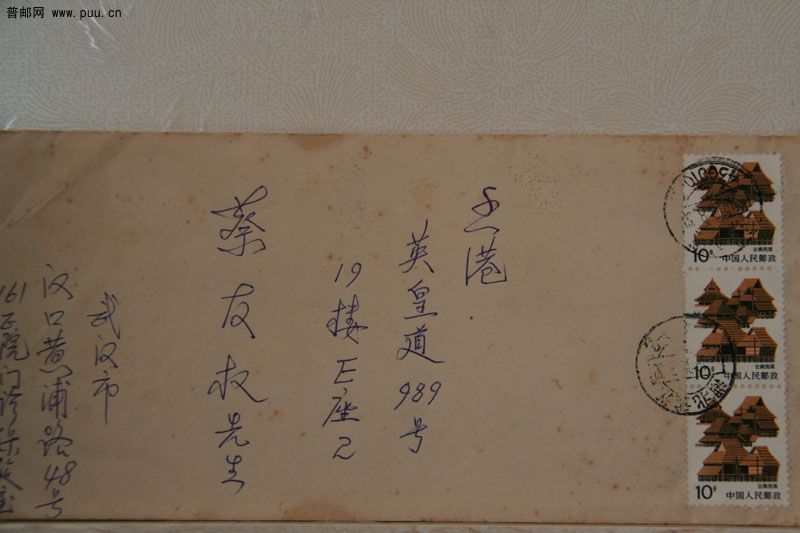 普邮网 www.puu.cn
香港
英皇道989号
19楼E座2
蔡友权先生
武汉市
汉口黄浦路48号
161医院门诊
云南民居
10分 中国人民邮政
云南民居
10分 中国人民邮政
云南民居
10分 中国人民邮政